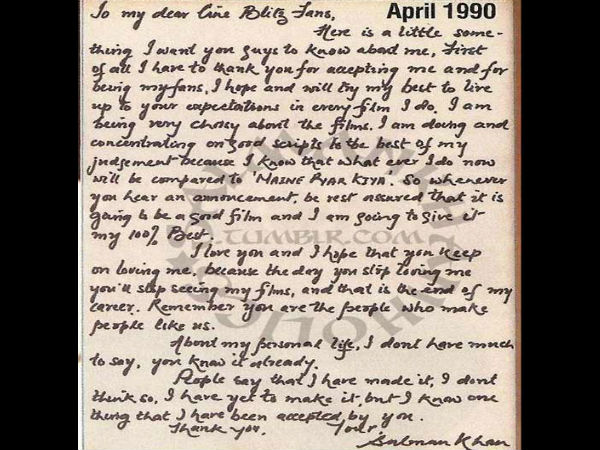 April 1990
To my dear Cine Blitz Fans,
Here is a little some-
thing I want you guys to know about me. First
of all I have to thank you for accepting me and for
being my fans, I hope and will try my best to live
up to your expectations in every film I do. I am
being very choisy about the films. I am doing and
concentrating on good scripts to the best of my
judgement because I know that what ever I do now
will be compared to 'MAINE PYAR KIYA'. So whenever
you hear an annoncement, be rest assured that it is
going to be a good film and I am going to give it
my 100% Best.
I love you and I hope that you keep
on loving me, because the day you stop loving me
you'll stop seeing my films, and that is the end of my
career. Remember you are the people who make
people like us.
About my personal life, I dont have much
to say, you know it already.
People say that I have made it, I dont
think so, I have yet to make it, but I know one
thing that I have been accepted by you.
Thank you. Your
Salman Khan
.TUMBLR.COM